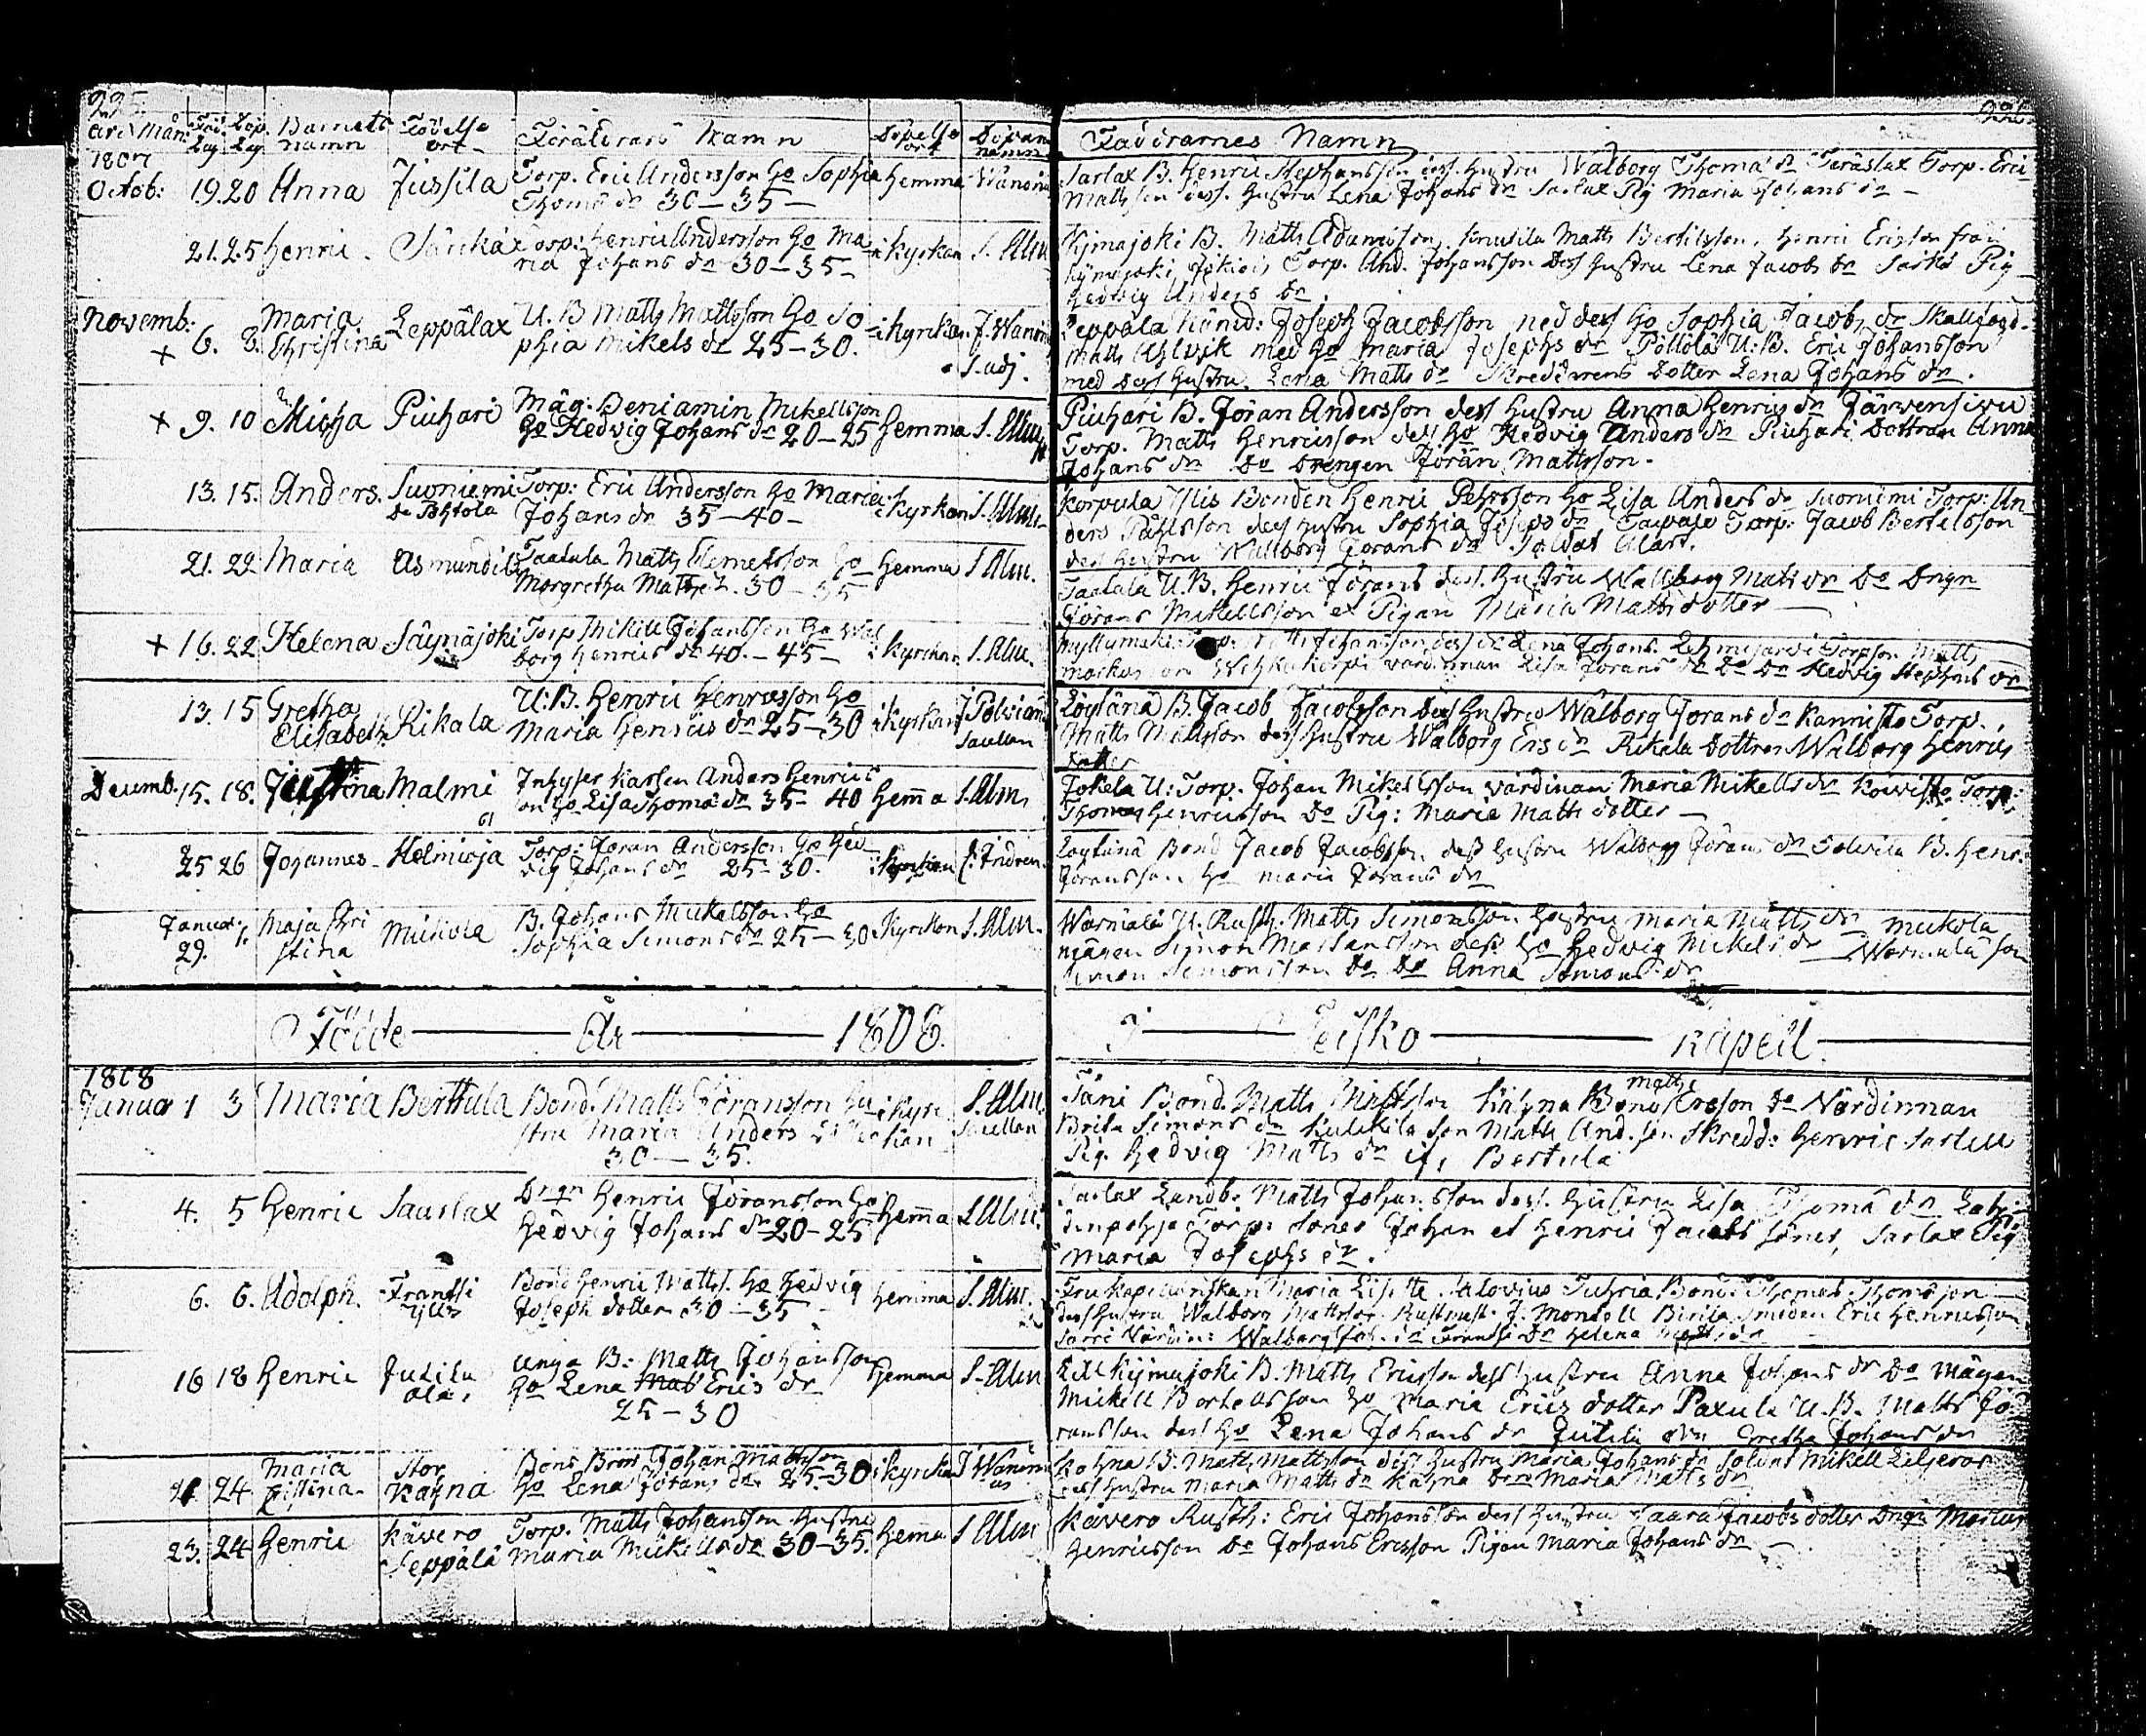 225.
År Mån: Föd. Dag Döp. Dag Barnets namn Födelse ort Föräldrars Namn Döpelse ort Döparens namn
1807
Octob: 19. 20 Anna Jussila Torp. Eric Andersson Ho Sophia Hemma Wanonius
Thomæ dr 30 — 35 —
21. 25 Henric Särikäx Torp: Henric Andersson Ho Ma i kyrkan S. Alm
ria Johans dr 30 — 35 —
Novemb: + 6. 8. Maria Christina Leppälax U. B Matts Mattsson Ho So i kyrkan. J. Wanonius
phia Mikels dr 25 — 30. S. adj.
+ 9. 10 Micha Piuhari Måg: Beniamin Mikellsson
Ho Hedvig Johans dr 20 — 25 Hemma S. Alm
13. 15. Anders. Suoniemi Torp: Eric Andersson Ho Maria i kyrkan S. Alm.
De Pohtola Johans dr 35 — 40 —
21. 22 Maria Asmundila Taatala Matts Clemetsson Ho Hemma S Alm.
Margretha Matts dr. 30 — 35
+ 16. 22 Helena Säynäjoki Torp Mikell Johansson Ho Wal
borg Henrics dr 40. — 45 — i kyrckan. S. Alm.
13. 15 Gretha Elisabeth Rikala U: B. Henric Henricsson Ho
Maria Henrics dr 25 — 30 i kyrkan J Polviander
Sacellan
Decemb. 15. 18. Justina Malmi Inhyser Karlen Anders Henrics
son Ho Lisa Thomæ dr 35 — 40 Hemma S. Alm.
25 26 Johannes Helmioja Torp: Joran Andersson Ho Hed
vig Johans dr 25 — 30. i kyrkan
Januar. 29. 1. Maja Chri stina Mickola B. Johans Mickelsson Ho
Sophia Simons dr 25 — 30 Kyrkan S. Alm.
Födde — År — 1808.
1808
Januar 1 3 Maria Berttula Bond. Matts Göransson Hu i Kyrc S. Alm.
stru Maria Anders dotter kan Sacellan
30 — 35.
4. 5 Henric Saurlax Drgn Henric Joransson Ho Hemma S Alm.
Hedvig Johans dr 20 — 25
6. 6. Adolph. Frantsi Bond Henric Matts. Ho Hedvig Hemma S. Alm.
Joseph dotter 30 — 35
16 18 Henric Jutila ala, unga B: Matts Johansson
Ho Lena Erics dr Hemma S. Alm
25 — 30
24 Maria Cristina Stor Kahna Bond Bror Johan Mattsson
Ho Lena Jörans dr 25 — 30 i kyrka J Wanonius
23. 24 Henric Kävero Seppälä Torp. Matts Johansson Hustru Hemma S Alm
Maria Mickels dr 30 — 35.
226
Faddrarnes Namn
Sarlax B. Henric Stephansson dess. Hustru Walborg Thomæ dr Teräslax Torp. Eric
Mattsson dess. Hustru Lena Johans dr Sarlax Pig Maria Johans dr —
Kymajoki B. Matts Adamsson, Knutila Matts Bertilsson, Henric Ericsson från
Kymajoki, Torp. And. Johansson Dess Hustru Lena Jacobs dr Pig
Hedwig Anders dr
Leppälä Nämd: Joseph Jacobsson med dess Ho Sophia Jacobs dr
Matts Ahlvik med Ho Maria Josephs dr Pöllölä U: B. Eric Johansson
med Dess Hustru, Lena Matts dr Skreddarens Dotter Lena Johans dr.
Piuhari B. Jöran Andersson dess Hustru Anna Henrics dr Järvensivu
Torp. Matts Henricsson dess Ho Hedvig Anders dr Piuhari Dottran Anna
Johans dr Do Drengen Jörän Mattsson.
Korpula Bonden Henric Pehrsson Ho Lisa Anders dr Suoniemi Torp: An
ders Påhlsson dess Hustru Sophia Josephs dr Torp: Jacob Bertilsson
dess Hustru Wallborg Jorans dr Soldat Alart.
Taatala U. B. Henric Jörans dess. Hustru Wallborg Mats dr Do Drgn
Görans Mikellsson et Pigan Maria Matts dotter —
Myllymaki Johansson dess Ho Lena Johans Torpson Matts
värdinnan Lisa Jorans dr Do Dr Hedvig Stephs dr
Löytänä B. Jacob Jacobsson Dess Hustru Walborg Jorans dr Kannisto Torp.
Matts Mattsson dess Hustru Walborg Ers dr Rikala Dottren Walborg Henrics
dotter
Jokela U: Torp. Johan Mikelsson värdinan Maria Mikells dr Koivisto Torp:
Thomas Henricsson Do Pig: Maria Matts dotter —
Löytänä Bond Jacob Jacobsson dess Hustru Walborg Jörans dr B. Henr.
Joransson Ho Maria Jorans dr
Wärmälä U. Rusth. Matts Simonsson Hustru Maria Matts dr Mickola
mågen Simon dess Ho Hedvig Mickels dr Wärmälä son
Simon Simonsson Do Do Anna Simons dr
I — Teisko — Kapell.
Täni Bond. Matts Mattsson Kahna Bond Matts Ersson Do Värdinnan
Brita Simons dr Kulckila Son Matts And. son Skredd: Henric
Pig. Hedvig Matts dr if, Bertula
Sarlax Landb: Matts Johansson dess. Hustru Lisa Thomæ dr Lah
denpohja Torp: Sones Johan et Henric Jacobs söner, Sarlax Pig
Maria Josephs dr.
Fru Kapellanskan Maria Lisette Bond: Thomas Thomæson
dess Hustru Walborg Mattsdr. Smeden Eric Henricsson
Walborg Joh. dr Frantsi Dr Helena Matts dr
Lill Kijmajoki B. Matts Ericsson dess Hustru Anna Johans dr Do Mågen
Mickell Bertellsson Ho Maria Erics dotter Paxula U. B. Matts Jö
ransson dess Ho Lena Johans dr Jutila Gretha Johans dr
Kahna B: Matts Mattsson dess Hustru Maria Johans dr Soldat Mikell Liljeros
dess Hustru Maria Matts dr Kahna Maria Matts dr
Kävero Rusth: Eric Johansson dess Hustru Saara Jacobs dotter Drgn
Henricsson Do Johans Ericsson Pigan Maria Johans dr —